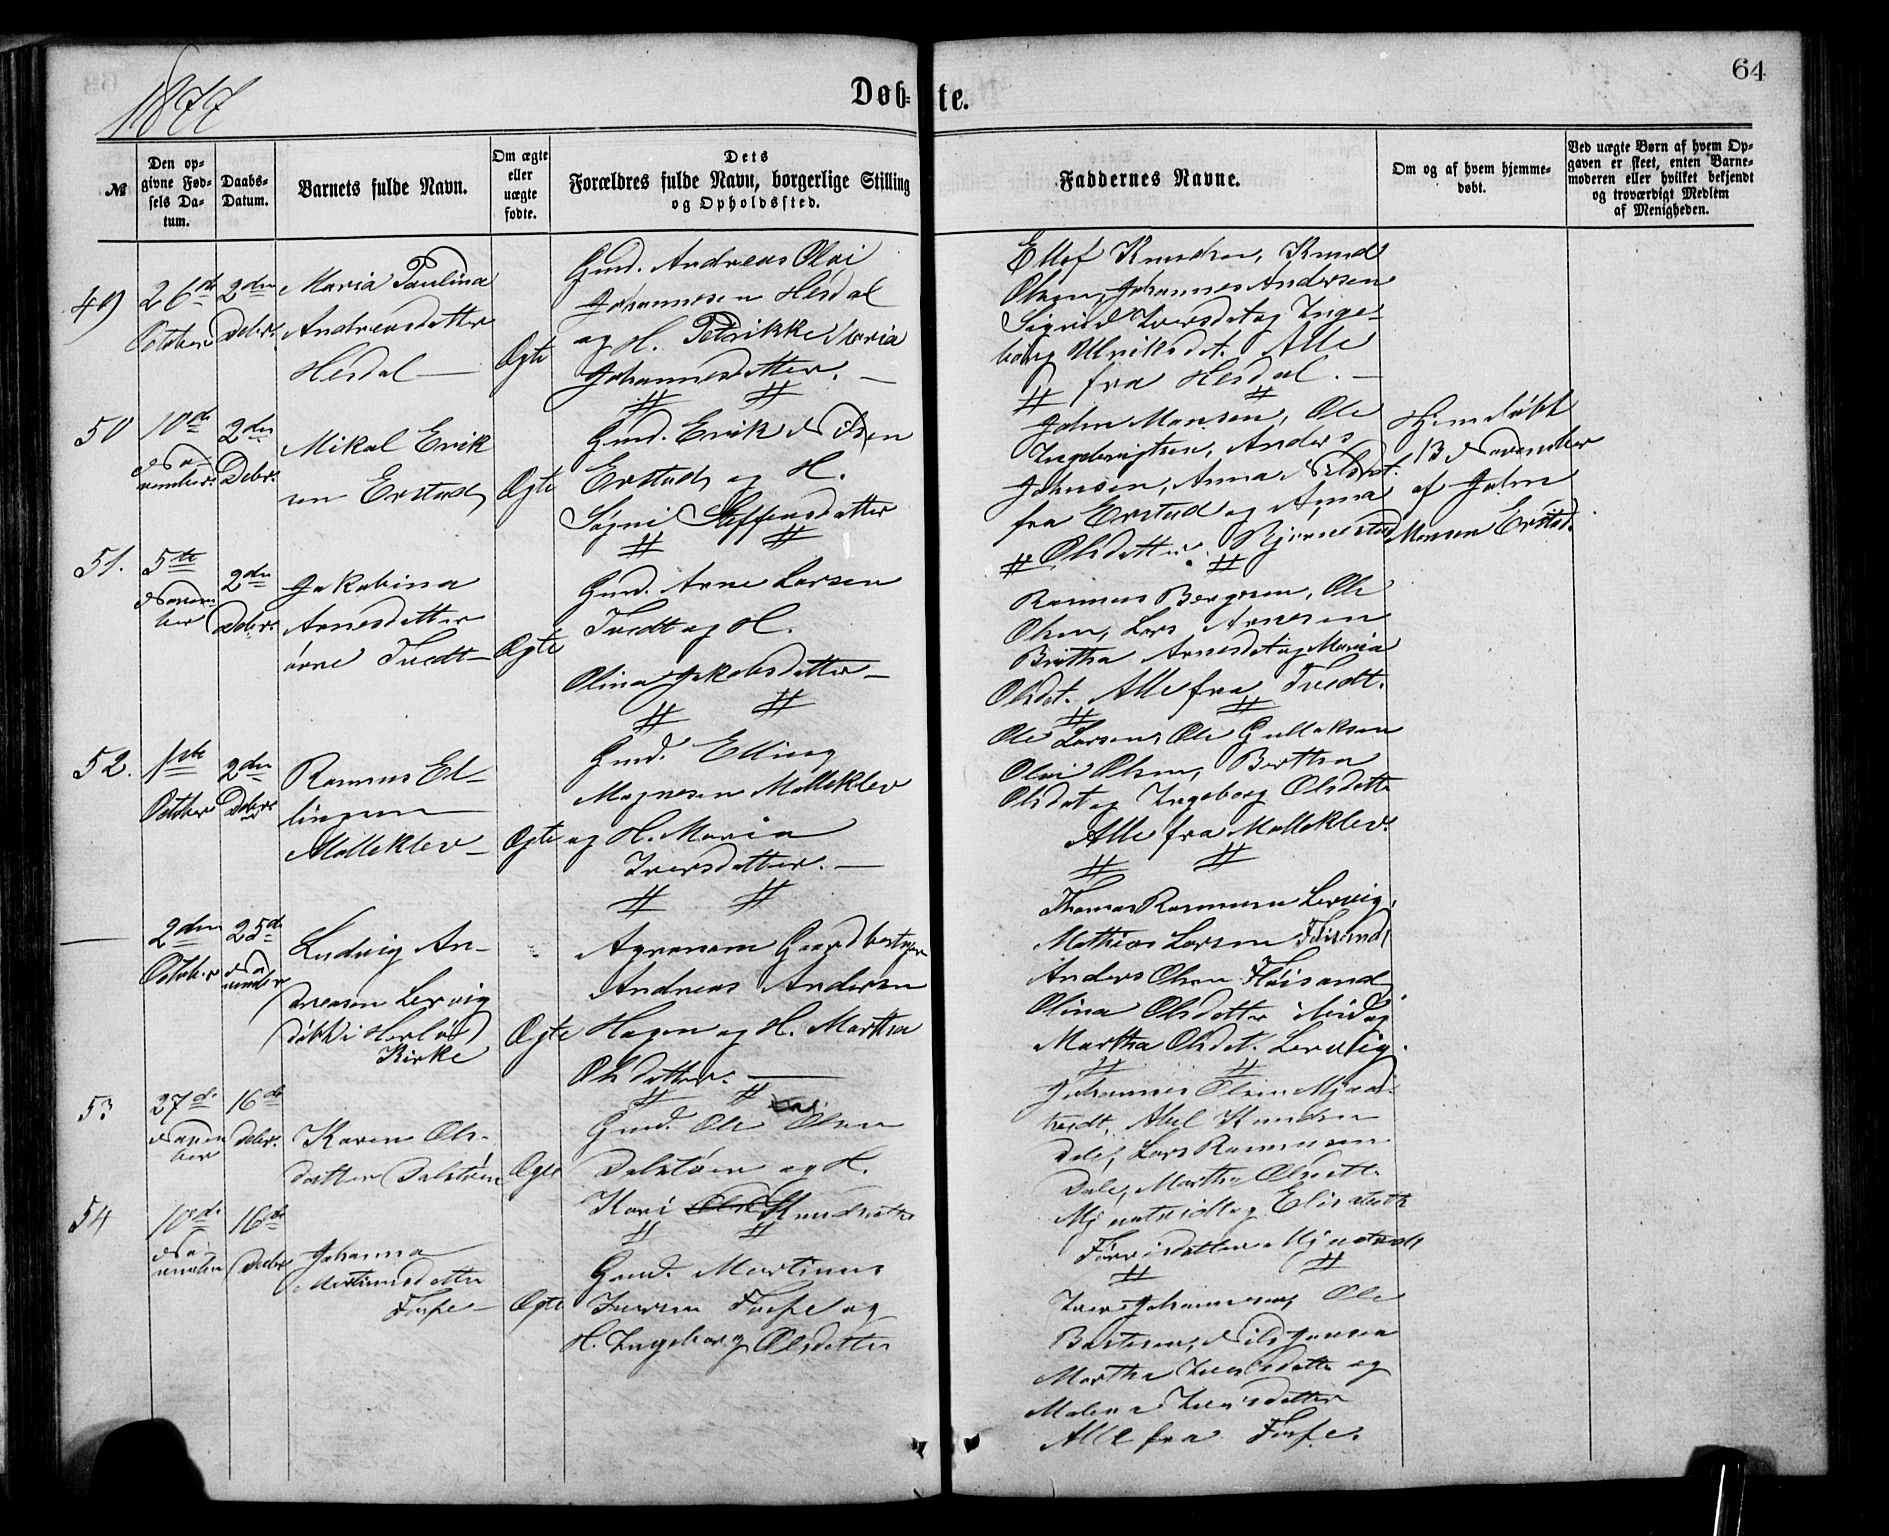 1877
Døb-te.
64
№
Den op-
givne Fød-
sels Da-
tum.
Daabs-
Datum.
Barnets fulde Navn.
Om ægte
eller
uægte
fødte.
Dets
Forældres fulde Navn, borgerlige Stilling
og Opholdssted.
Faddernes Navne.
Om og af hvem hjemme-
døbt.
Ved uægte Børn af hvem Op-
gaven er skeet, enten Barne-
moderen eller hvilket bekjendt
og troværdigt Medlem
af Menigheden.
49)
26de
October
2den
Debr.
Maria Paulina
Andreasdatter
Hesdal
Ægte
Gmd. Andreas Olai
Johannesen Hesdal
og H. Petrikke Maria
Johannesdatter.
Ellef Knudsen, Knud
Olsen, Johannes Andersen
Sigrid Iversdat og Inge-
borg Ulriksdat. Alle
fra Hesdal.
50
10de
November
2den
Debr.
Mikal Erik
sen Erstad
Ægte
Gmd. Erik Nilsen
Erstad og H.
Signi Steffensdatter
John Monsen, Ole
Ingebrigtsen, Anders
Johnsen, Anna Nilsdat.
fra Erstad og Anna
Olsdatter Bjørnestad
Hjemdøbt
13 November
af John
Monsen Erstad.
51.
5te
Novem-
ber
2den
Debr.
Jakobina
Arnesdatter
øvre Tvedt
Ægte
Gmd. Arne Larsen
Tvedt og H.
Olina Jakobsdatter
Rasmus Bergesen, Ole
Olsen, Lars Arnesen
Britha Arnesdat og Maria
Olsdat. Alle fra Tvedt.
52.
1ste
October
2den
Debr.
Rasmus El-
lingsen
Mølleklev
Ægte
Gmd. Elling
Magnesen Mølleklev
og H. Maria
Iversdatter.
Ole Larsen, Ole Gulleksen
Olai Olsen, Bertha
Olsdat og Ingeborg Olsdatt
Alle fra Mølleklev.
2den
October
25de
November
Ludvig An-
dreasen Lervig
døbt i Herlø
Kirke
Ægte
Agronom Gaardbestyrer
Andreas Andersen
Hagen og H. Martha
Olsdatter.
Thomas Rasmussen Lervig,
Mathias Larsen Fløisand
Anders Olsen Fløisand
Olina Olsdatter
Martha Olsdat. Lervig.
53
27de
Novem
ber
16de
Debr.
Karen Ols-
datter Dalstøen
Ægte
Gmd. Ole Olsen
Dalstøen og H.
Kari Knudsdatter
Johannes Olsen Mjaa-
tvedt, Axel Knudsen
Dale, Lars Rasmussen
Dale, Martha Olsdatt.
Mjaatveidt og Elisabeth
54
10de
November
16de
Debr
Johanna
Martinusdatter
Fosse
Ægte
Gmd. Martinus
Iversen Fosse og
H. Ingeborg Olsdatter
Iver Johannesen, Ole
Bastesen, Nils Jansen
Martha Iversdatter og
Malena Iversdatter
Alle fra Fosse.